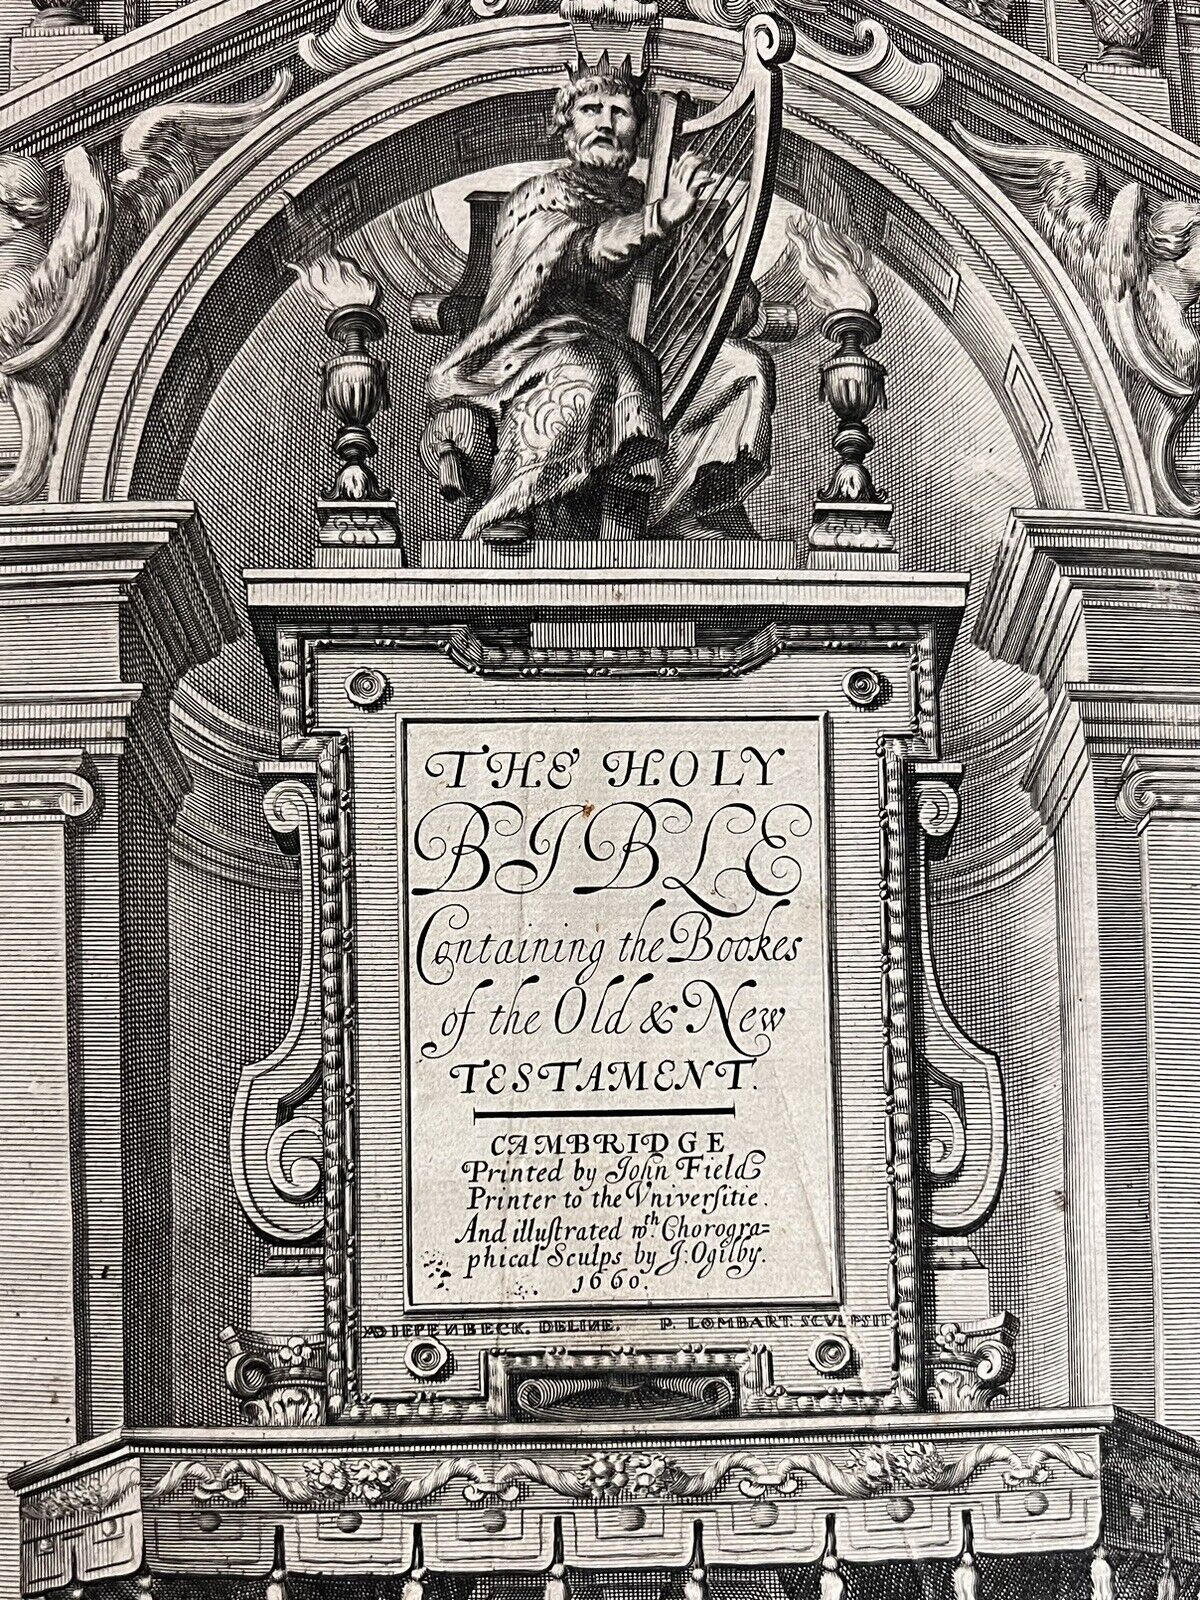 THE HOLY
BIBLE
Containing the Bookes
of the Old & New
TESTAMENT.
CAMBRIDGE
Printed by John Field
Printer to the Vniverſitie.
And illuſtrated wth. Chorogra=
phical Sculps by J. Ogilby.
1660.
A DIEPENBECK. DELINE. P. LOMBART. SCVLPSIT